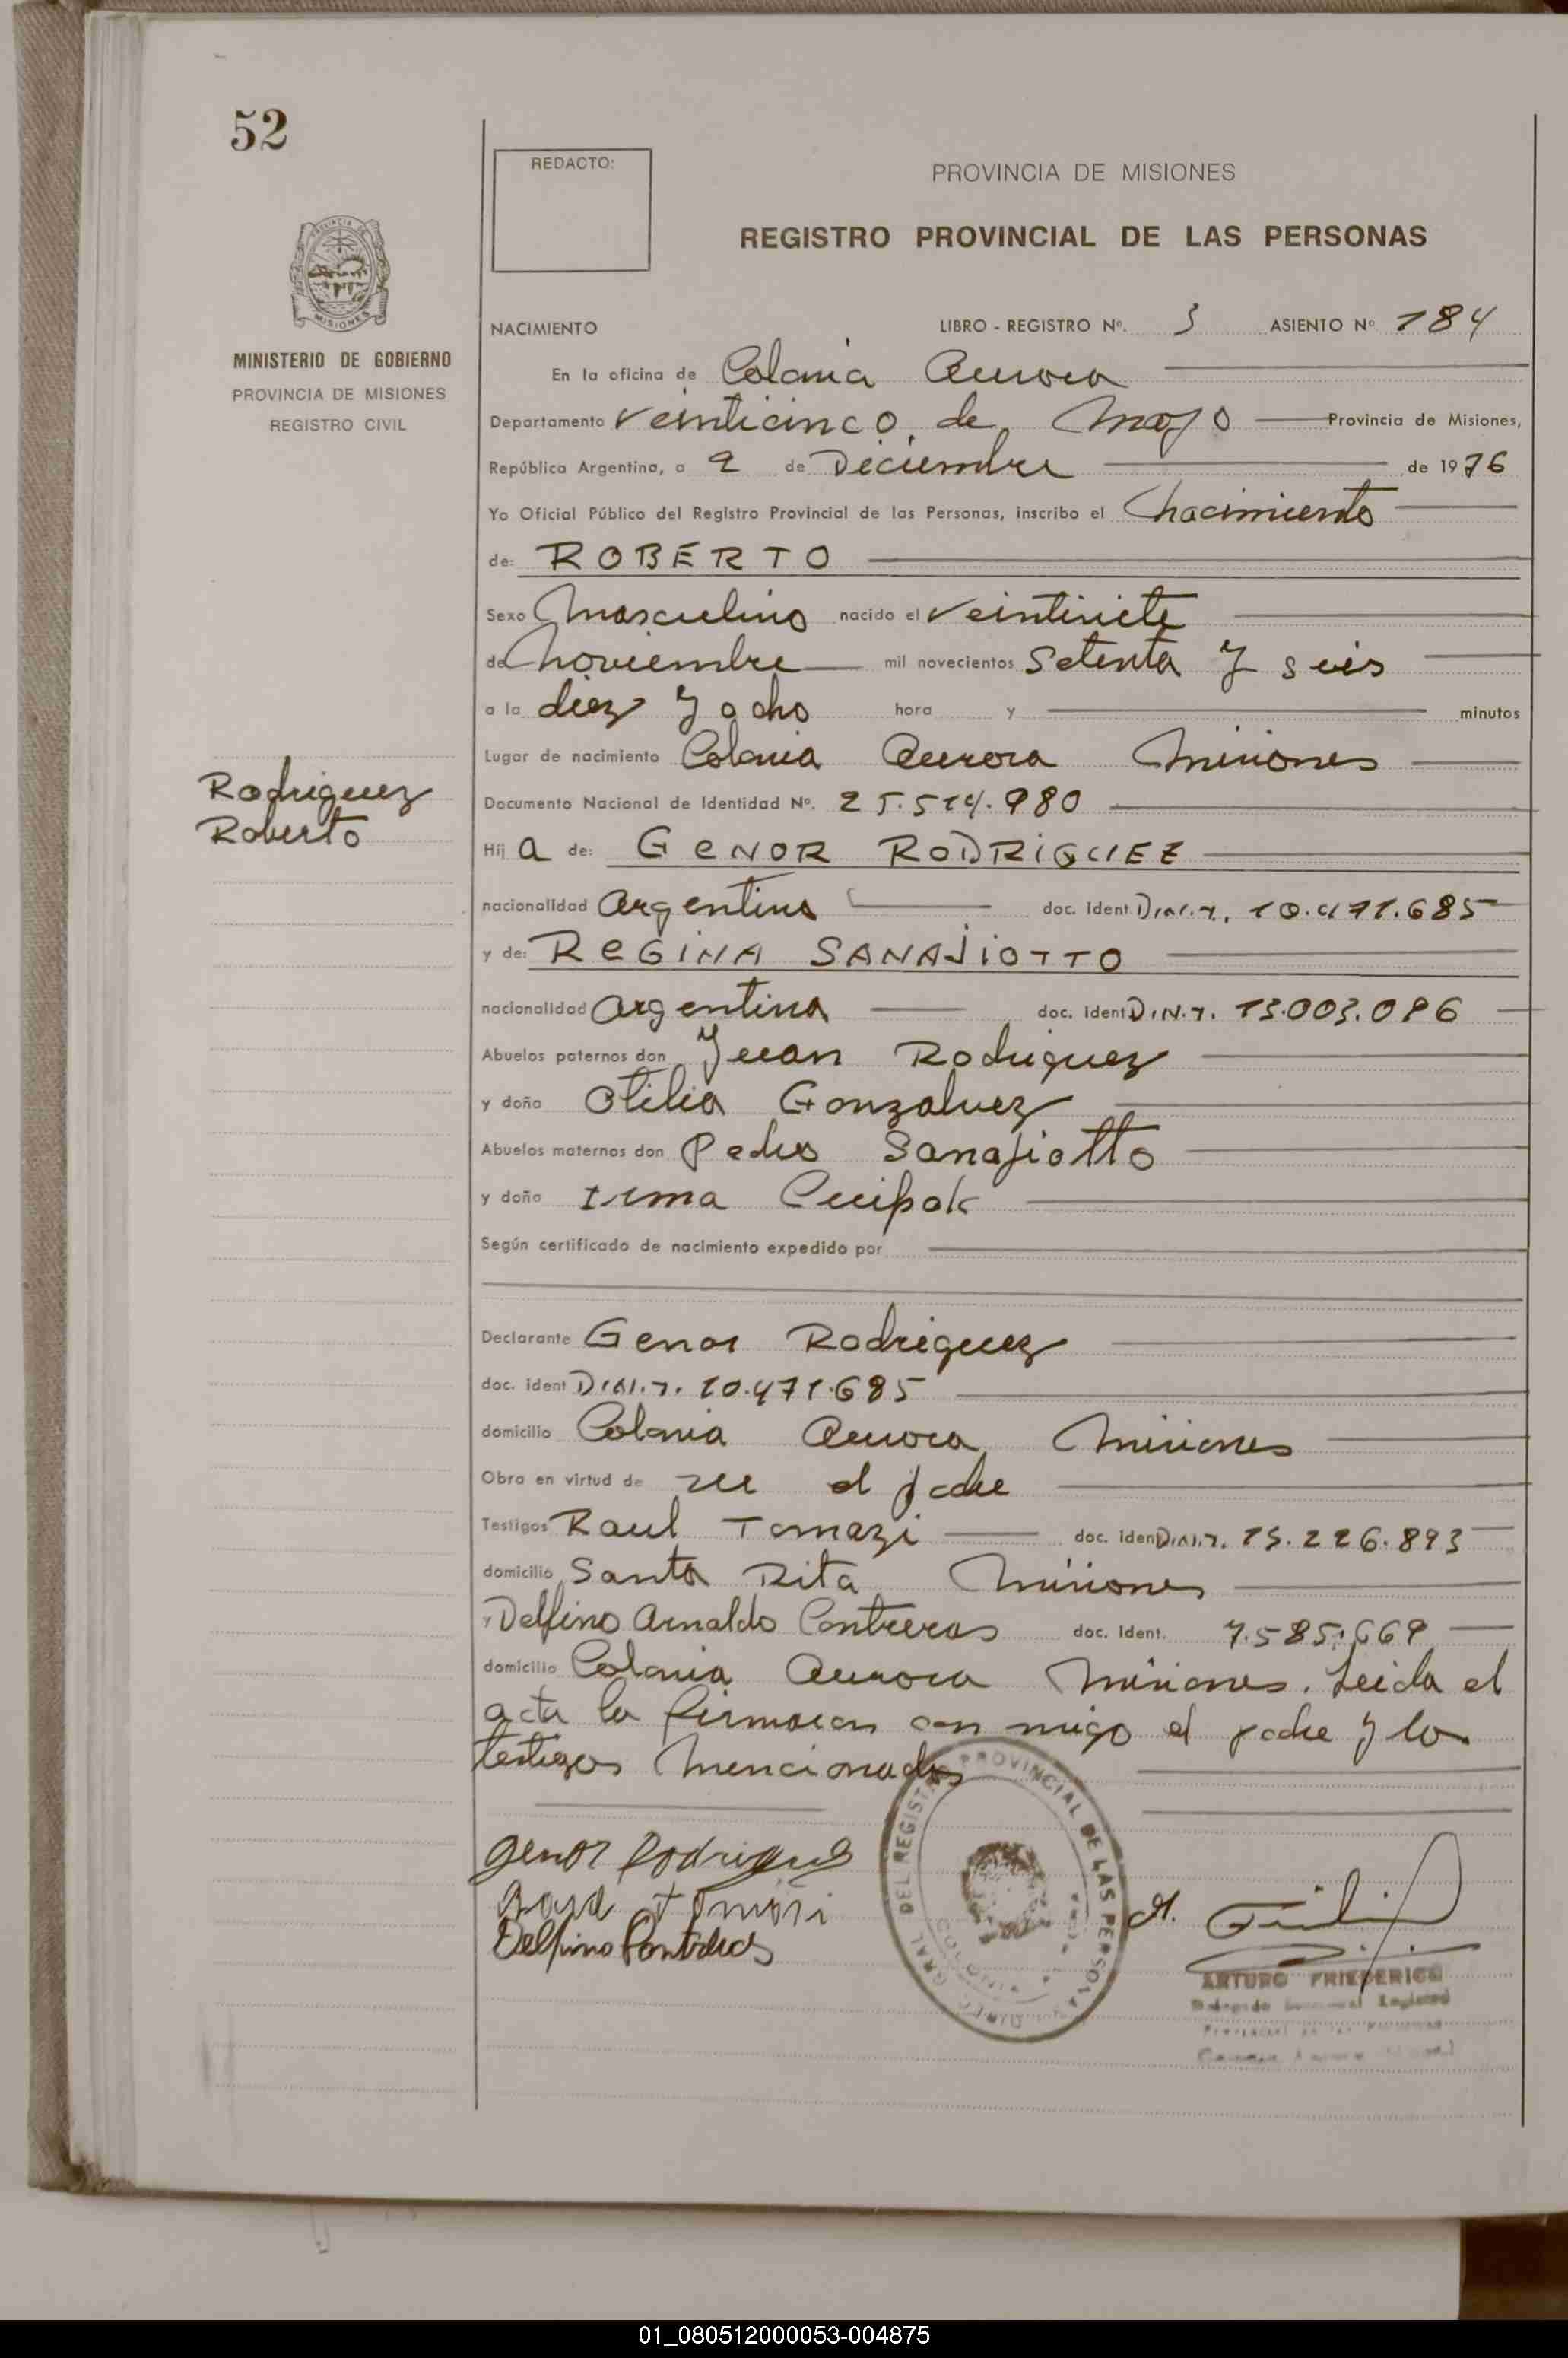 52
REDACTO:
PROVINCIA DE MISIONES
REGISTRO PROVINCIAL DE LAS PERSONAS
MISIONES
MINISTERIO DE GOBIERNO
PROVINCIA DE MISIONES
REGISTRO CIVIL
NACIMIENTO LIBRO - REGISTRO Nº. 3 ASIENTO Nº 184
En la oficina de Colonia Aurora
Departamento Veinticinco de Mayo Provincia de Misiones,
República Argentina, a 2 de Diciembre de 1976
Yo Oficial Público del Registro Provincial de las Personas, inscribo el Nacimiento
de: ROBERTO
Sexo Masculino nacido el Veintisiete
de Noviembre mil novecientos Setenta y seis
a la diez y ocho hora y minutos
Lugar de nacimiento Colonia Aurora Misiones
Rodriguez
Roberto
Documento Nacional de Identidad Nº. 25.514.980
Hij o de: GENOR RODRIGUEZ
nacionalidad Argentino doc. ident. D.N.I. 10.471.685
y de: REGINA SANAJIOTTO
nacionalidad Argentina doc. ident D.N.I. 13.003.096
Abuelos paternos don Juan Rodriguez
y doña Otilia Gonzalvez
Abuelos maternos don Pedro Sanajiotto
y doña Irma
Según certificado de nacimiento expedido por
Declarante Genor Rodriguez
doc. ident D.N.I. 10.471.685
domicilio Colonia Aurora Misiones
Obra en virtud de ser el padre
Testigos Raul Tomazi doc. iden D.N.I. 13.226.893
domicilio Santa Rita Misiones
y Delfino Arnaldo Contreras doc. Ident. 7.585.669
domicilio Colonia Aurora Misiones. Leida el
acta la firmaran con migo el padre y los
testigos Mencionados
Genor Rodrigues
Delfino Contreras
DIREC. GRAL. DEL REGISTRO PROVINCIAL DE LAS PERSONAS
COLONIA
ARTURO FRIEDERICH
01_080512000053-004875